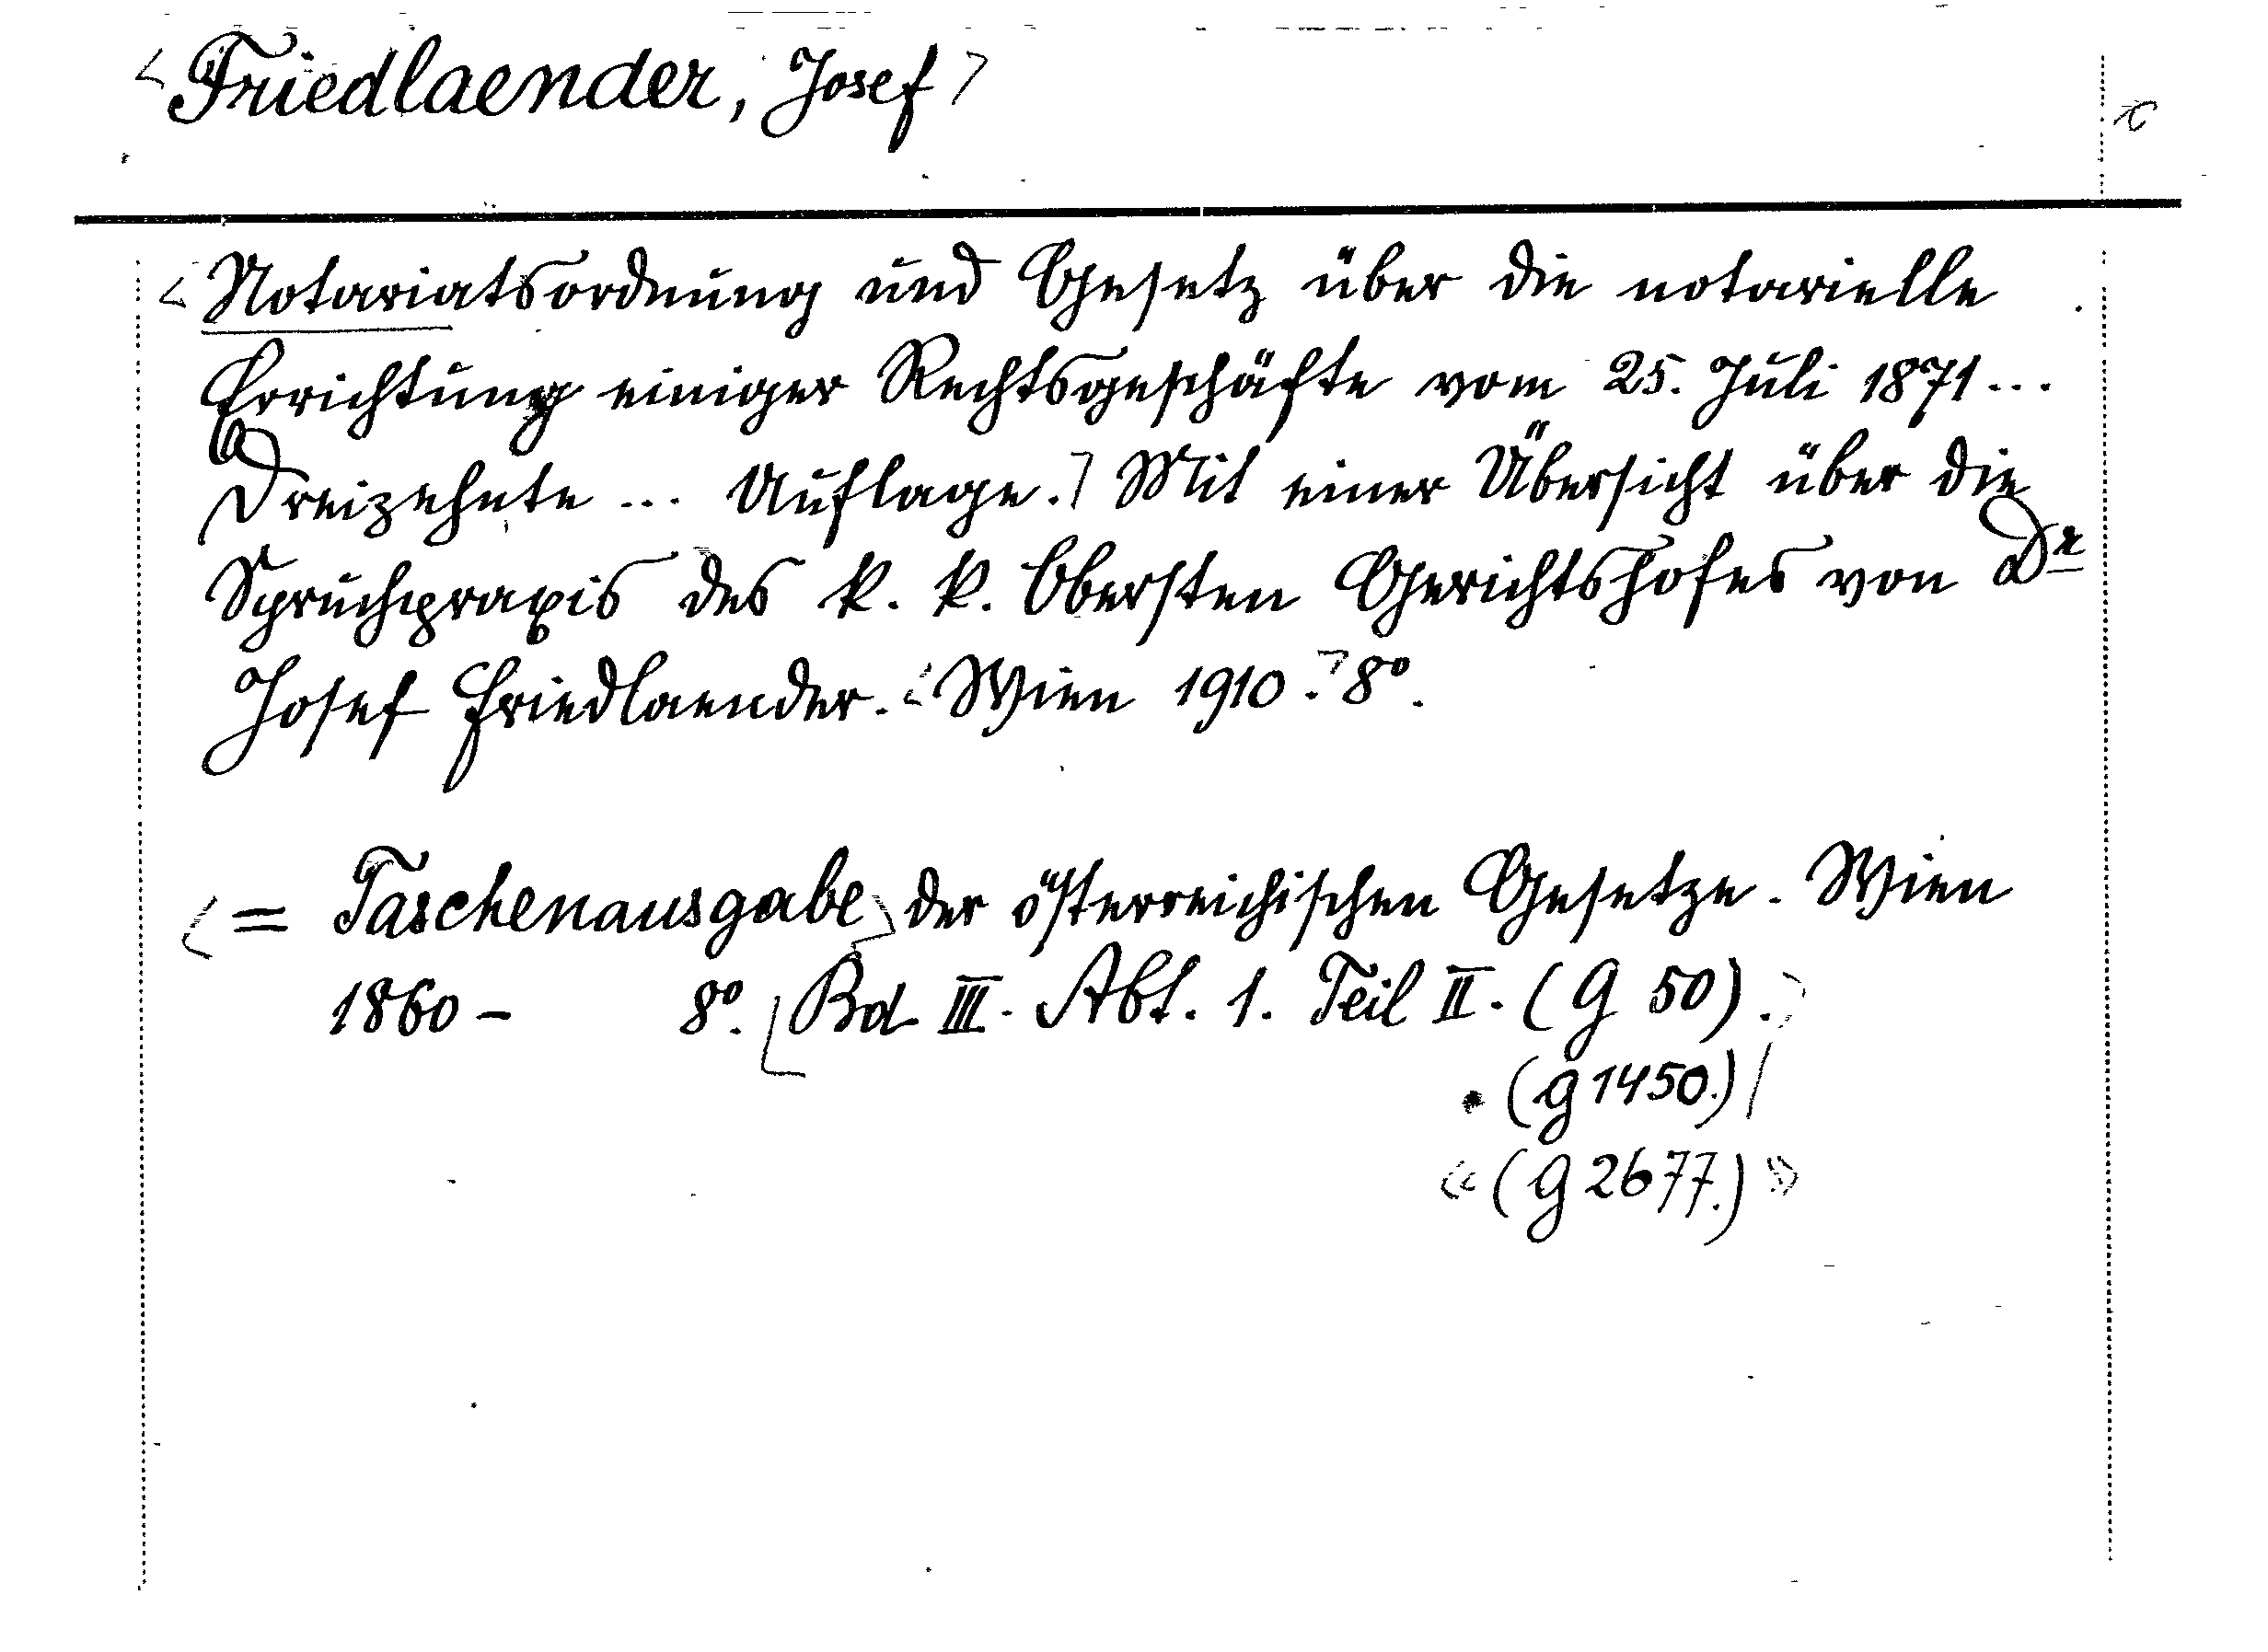 <Friedlaender, Josef>
<Notariatsordnung und Gesetz über die notarielle
Errichtung einiger Rechtsgeschäfte vom 25. Juli 1871...
Dreizehnte ... Auflage.> Mit einer Übersicht über die
Spruchpraxis des k. k. Obersten Gerichtshofes von Dr
Josef Friedlaender. <Wien 1910.> 8°.
<= Taschenausgabe> der österreichischen Gesetze. Wien
1860 - 8°. [Bd. III. Abt. 1. Teil II. (G 50).>
(G 1450.)
«(G 2677.)»